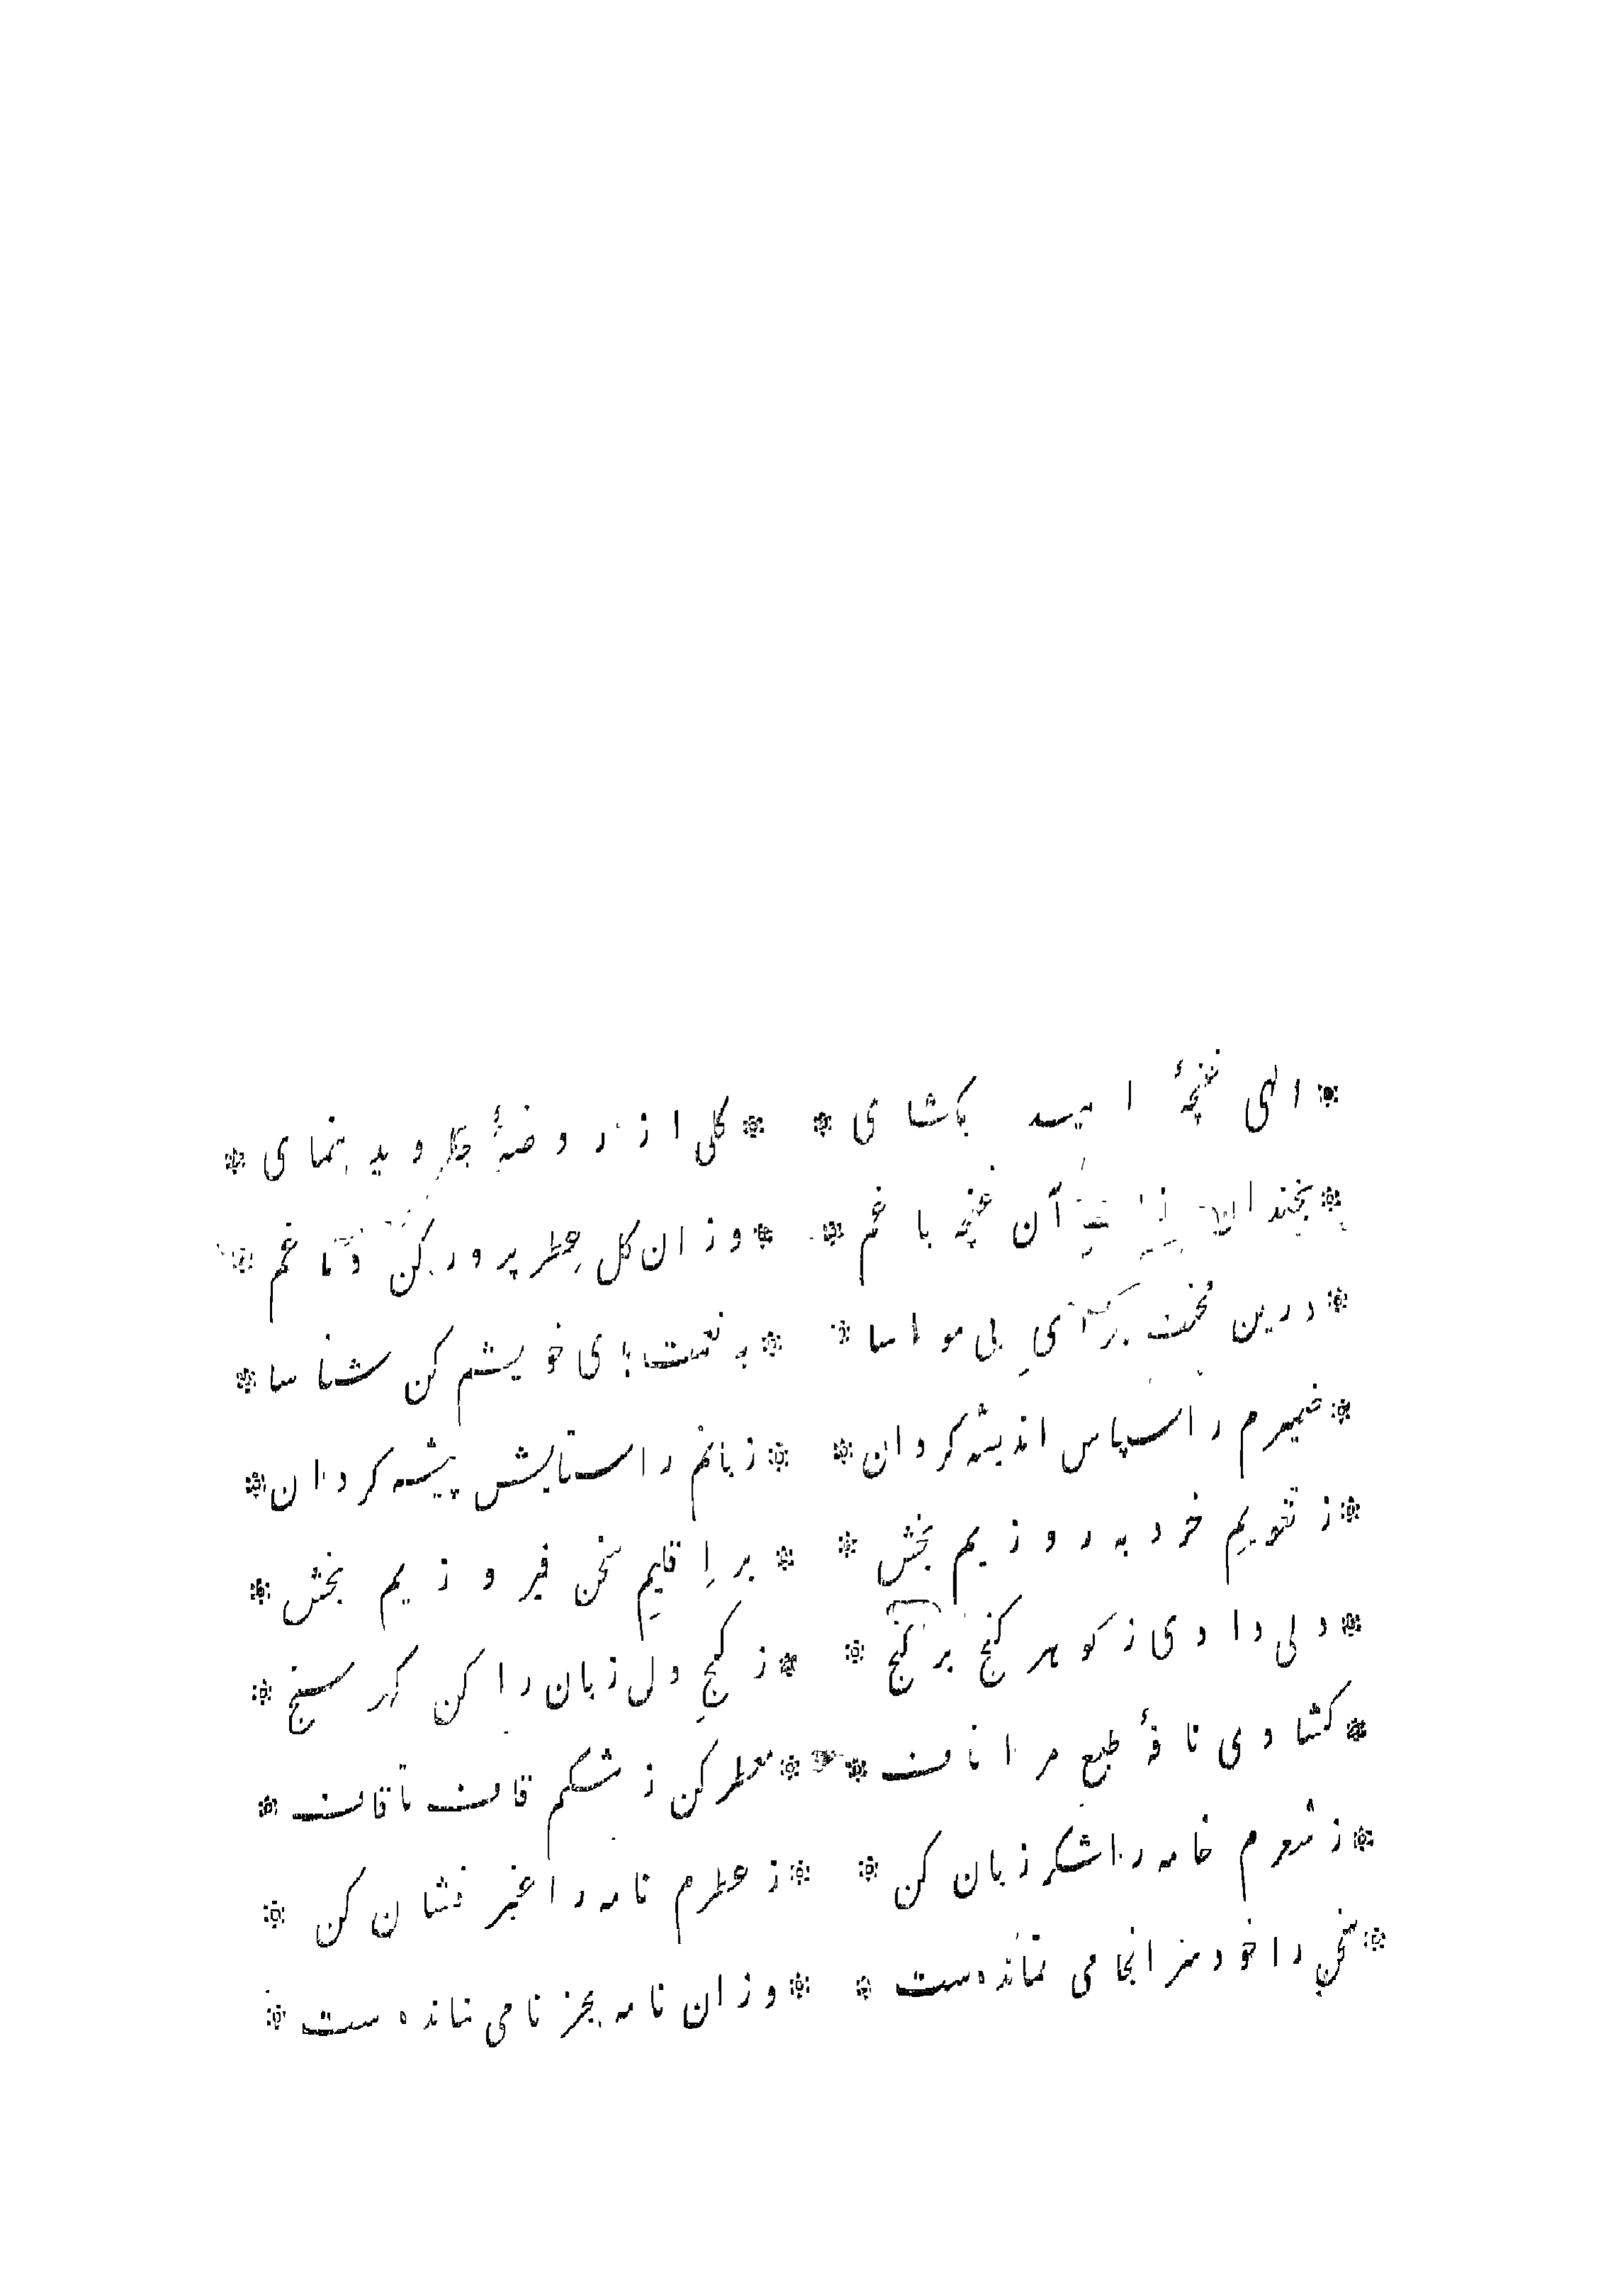 * الهی غنچهٔ امید بکشای * * کلی از روضهٔ جاوید بنمای *
* بخندان از لب آن غنچه باغم * * وزان کل عطر پرور کن دماغم *
* درین محنت سرآیِ بی مواسا * * به نعمتهای خویشم کن شناسا *
* ضمیرم را سپاس اندیشه کردان * * زبانم را ستایش پیشه کردان *
* ز تقویمِ خرد به روزیم بخش * * بر اِقلیمِ سخن فیروزیم بخش *
* دلی دادی ز کوهر کنج بر کنج * * ز کنجِ دل زبان را کن کهر سنج *
* کشادی نافهٔ طبعِ مرا ناف * * معطر کن ز مشکم قاف تا قاف *
* ز شعرم خامه را شکر زبان کن * * ز عطرم نامه را عنبر فشان کن *
* سخن را خود سرانجامی نمانده ست * * وزان نامه بجز نامی نمانده ست *